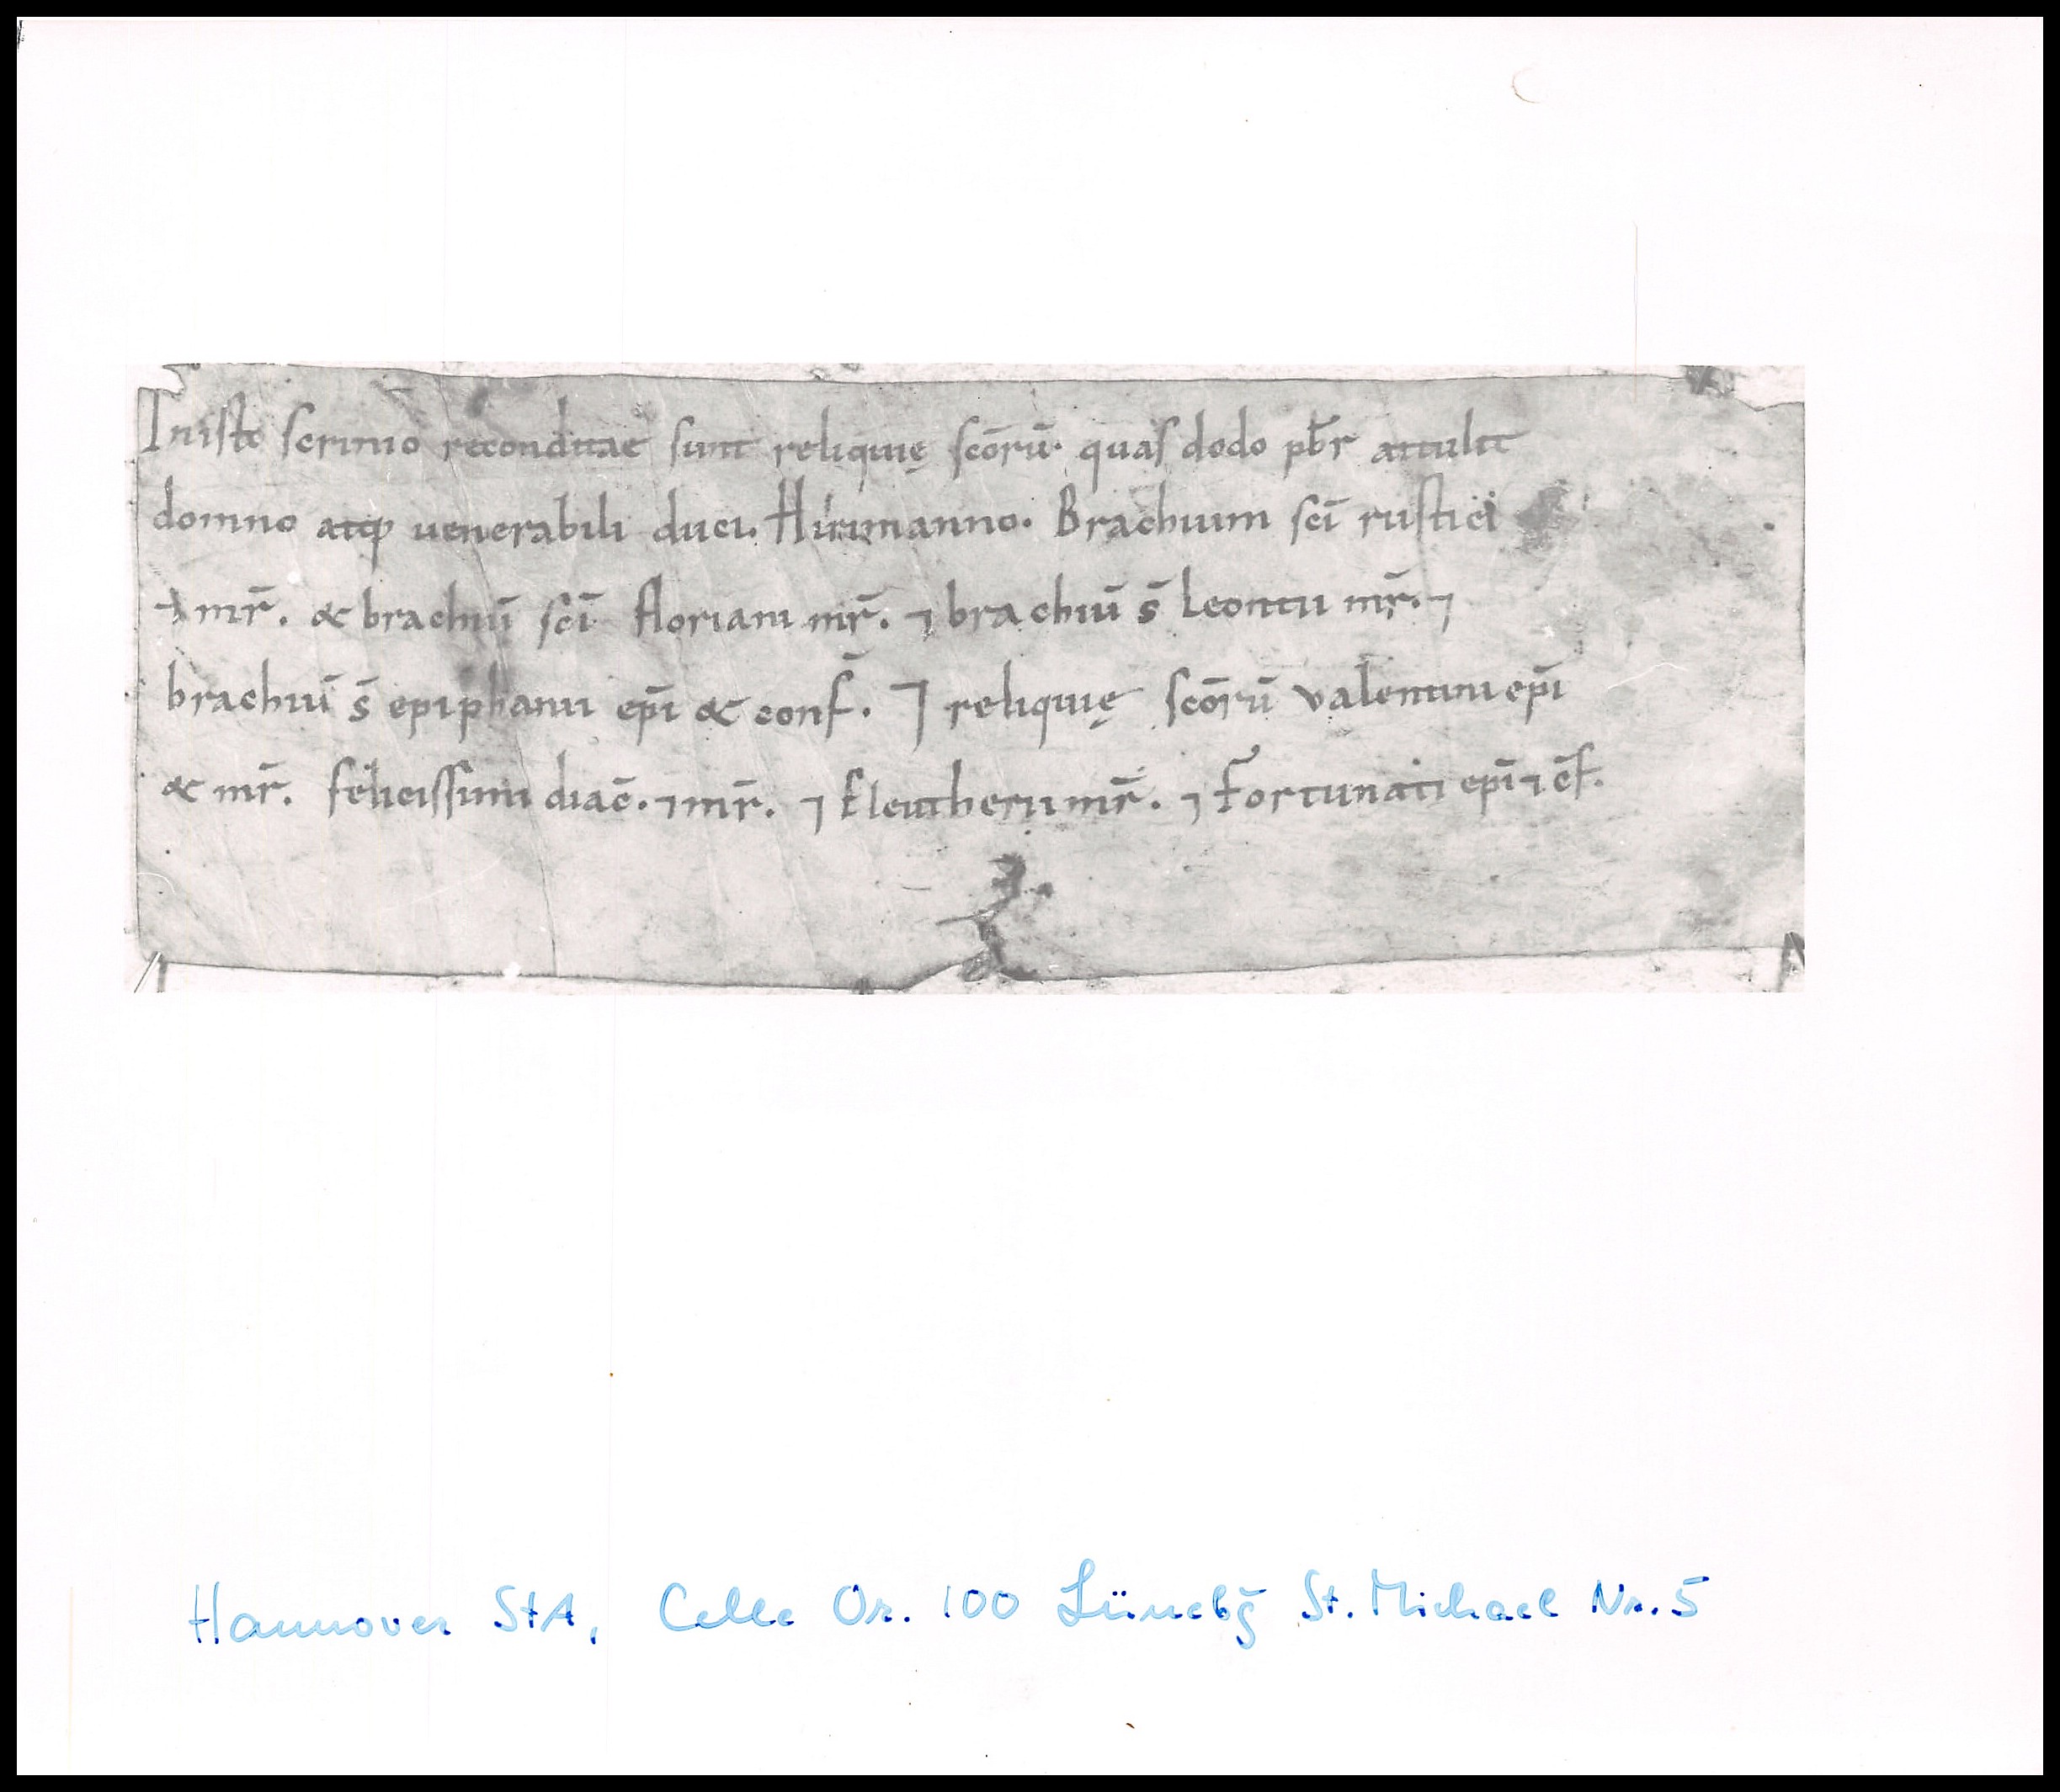 In isto scrinio reconditae sunt reliquię scōrū· quas dodo pb̄r attulit
domno atq; uenerabili duci. Hirimanno. Brachium sc̄i rustici
⁊ mr̄. & brachiū sc̄i floriani mr̄. ⁊ brachiū s̄ Leontii mr̄. ⁊
brachiū s̄ epiphanii ep̄i & conf̄. ⁊ reliquię scōrū valentini ep̄i
& mr̄. felicissimi diac̄. ⁊ mr̄. ⁊ Eleutherii mr̄. ⁊ Fortunati ep̄i ⁊ c̄f.
Hannover StA, Celle Or. 100 Lünebg̃ St. Michael Nr. 5